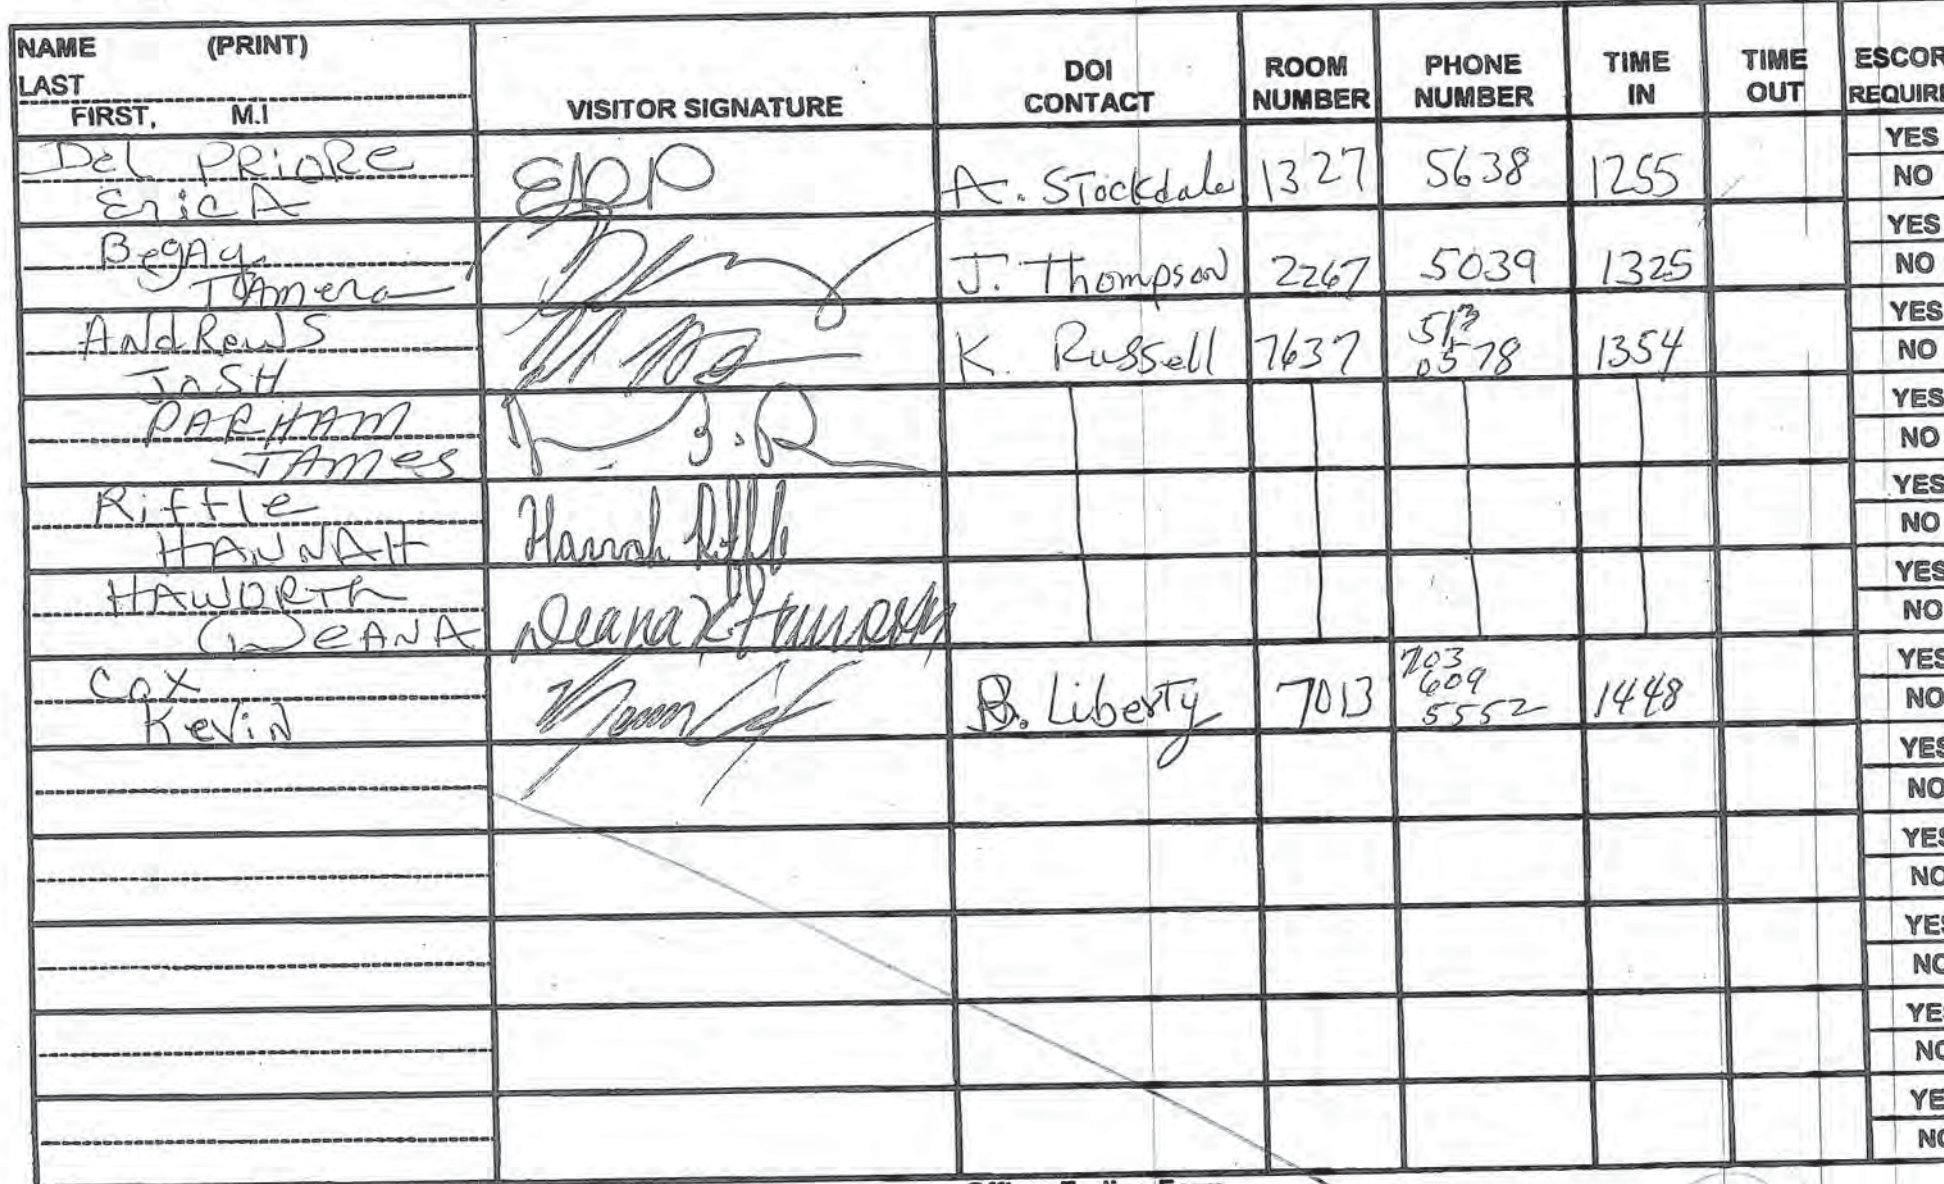 NAME (PRINT)
LAST
FIRST, M.I
VISITOR SIGNATURE
DOI
CONTACT
ROOM
NUMBER
PHONE
NUMBER
TIME
IN
TIME
OUT
ESCOR
REQUIRE
Del PRiORe
EricA
EDP
A. Stockdale 1327 5638 1255
YES
NO
BegAy
TAmera
J. Thompson 2267 5039 1325
YES
NO
ANdRewS
JoSH
K. Russell 7637 513
0578 1354
YES
NO
PARHAM
JAmes
YES
NO
Riffle
HANNAH
Hannah Riffle
YES
NO
HAWORTh
DeANA
Deana K Haworth
YES
NO
Cox
KeviN
B. Liberty 7013 703
609
5552 1448
YES
NO
YES
NO
YES
NO
YES
NO
YE
NO
YE
NO